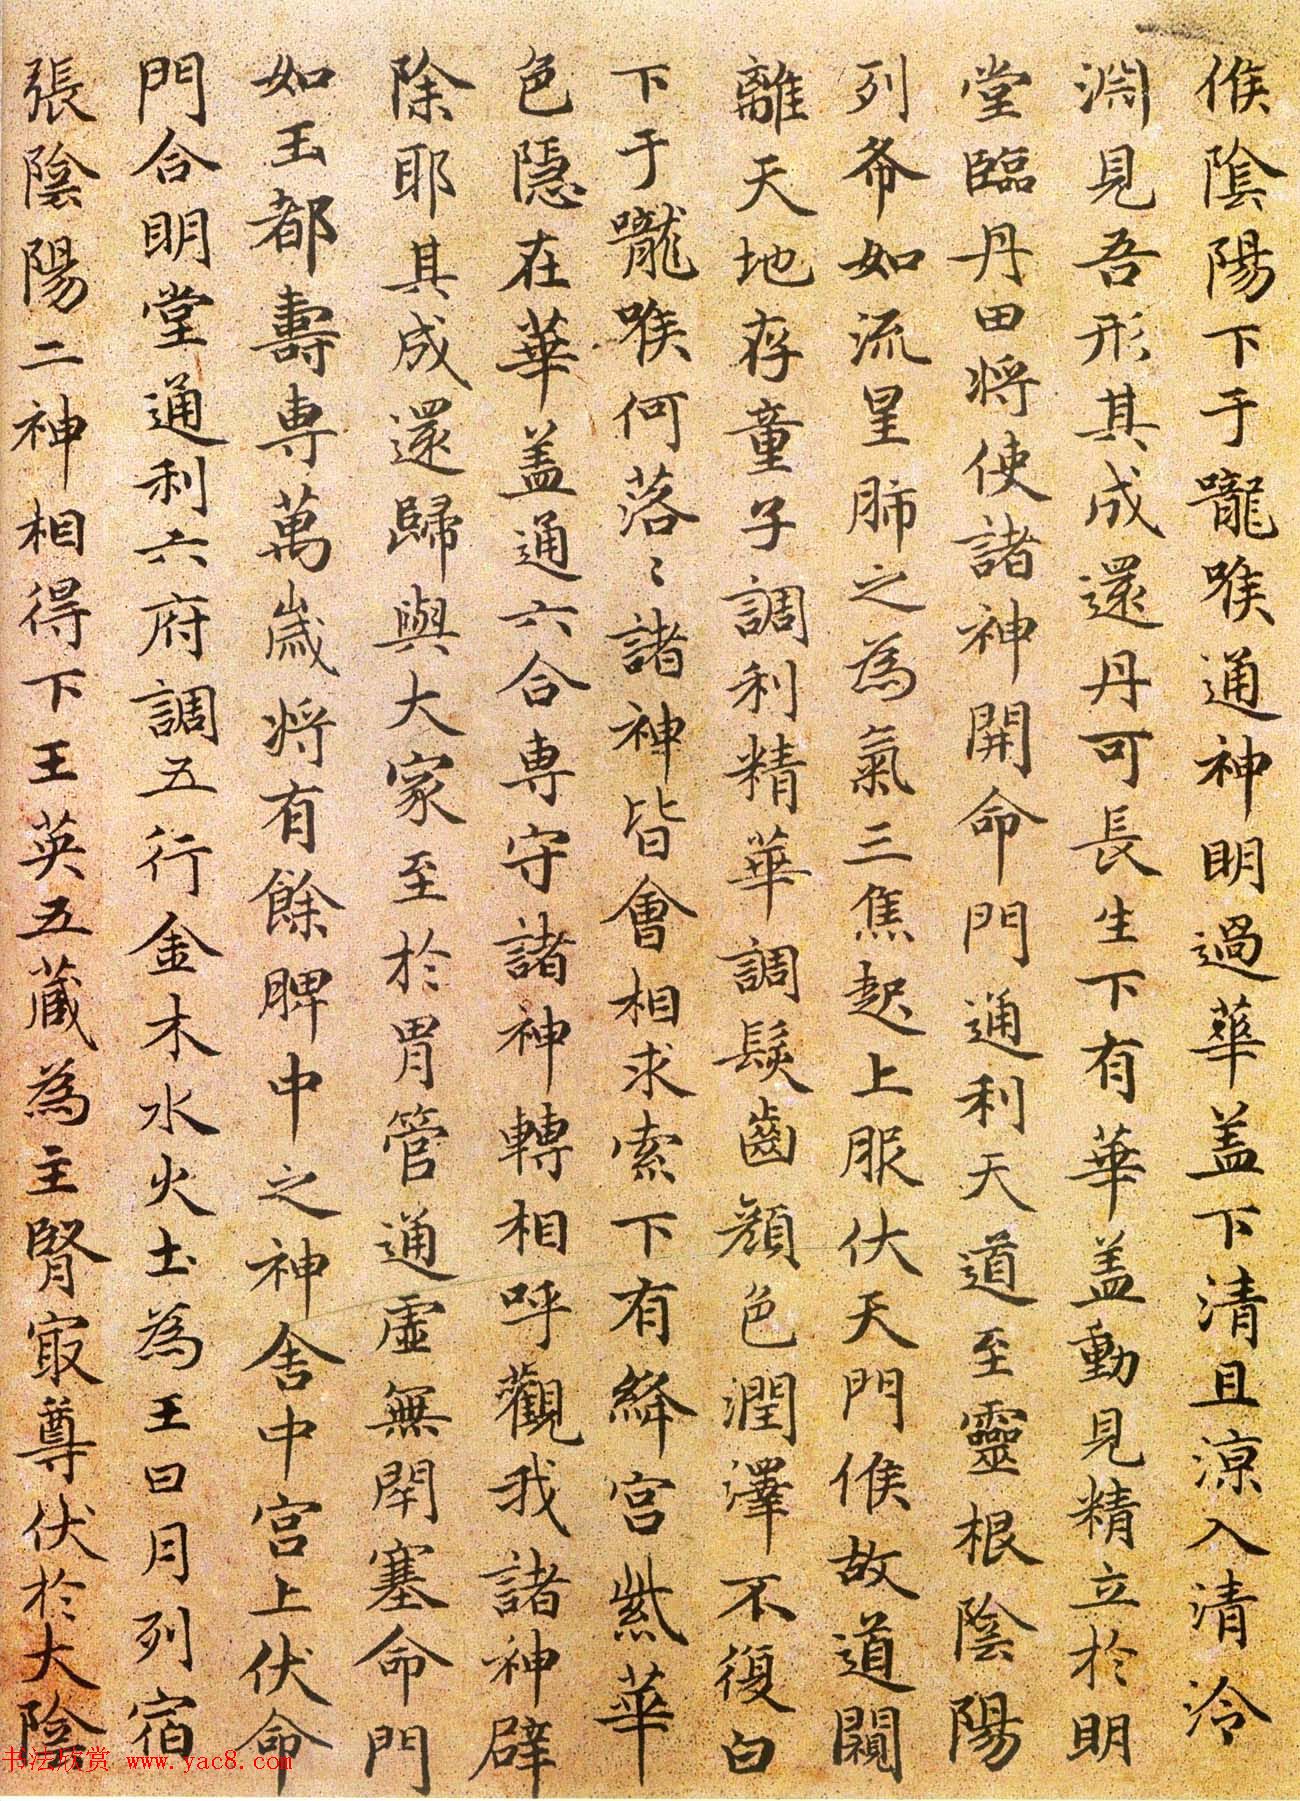 候陰陽下于嚨喉通神明過華盖下清且涼入清泠
淵見吾形其成還丹可長生下有華盖動見精立於明
堂臨丹田将使諸神開命門通利天道至靈根陰陽
列布如流星肺之為氣三焦起上服伏天門候故道闚
離天地存童子調利精華調髮齒顔色潤澤不復白
下于嚨喉何落〻諸神皆會相求索下有絳宫紫華
色隠在華盖通六合専守諸神轉相呼觀我諸神辟
除耶其成還歸與大家至於胃管通虚無閉塞命門
如玉都壽専萬歳将有餘脾中之神舍中宫上伏命
門合明堂通利六府調五行金木水火土為王日月列宿
張陰陽二神相得下玉英五藏為主腎冣尊伏於大陰
书法欣赏 www.yac8.com